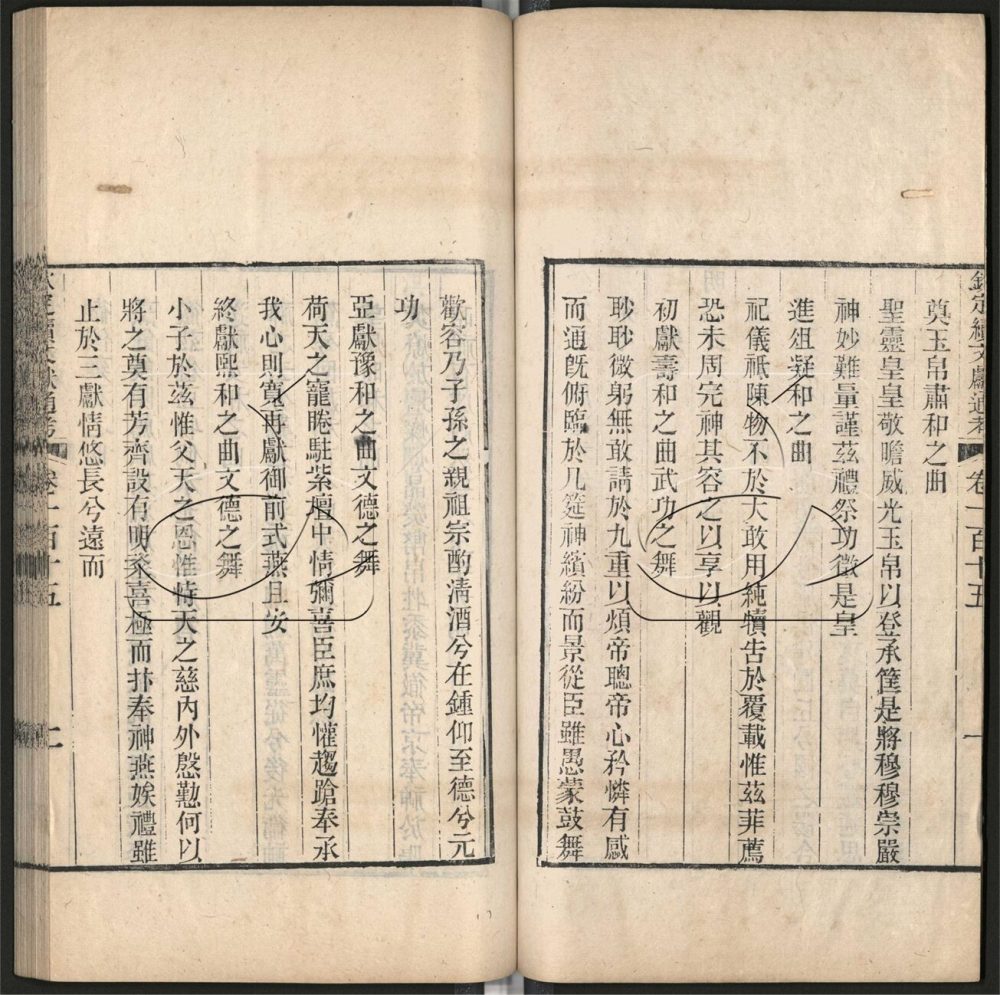 欽定續文獻通考 卷一百十五 一
奠玉帛肅和之曲
聖靈皇皇敬瞻威光玉帛以登承筐是將穆穆崇嚴
神妙難量謹茲禮祭功徵是皇
進俎凝和之曲
祀儀祇陳物不於大敢用純犢告於覆載惟茲菲薦
恐未周完神其容之以享以觀
初獻壽和之曲武功之舞
眇眇微躬無敢請於九重以煩帝聰帝心矜憐有感
而通旣俯臨於几筵神繽紛而景從臣雖愚蒙鼓舞
歡容乃子孫之親祖宗酌清酒兮在鍾仰至德兮元
功
亞獻豫和之曲文德之舞
荷天之寵睠駐紫壇中情彌喜臣庶均懽趨蹌奉承
我心則寬再獻御前式燕且安
終獻熙和之曲文德之舞
小子於茲惟父天之恩惟恃天之慈內外慇懃何以
將之奠有芳齊設有明粢喜極而抃奉神燕娭禮雖
止於三獻情悠長兮遠而
欽定續文獻通考 卷一百十五 二